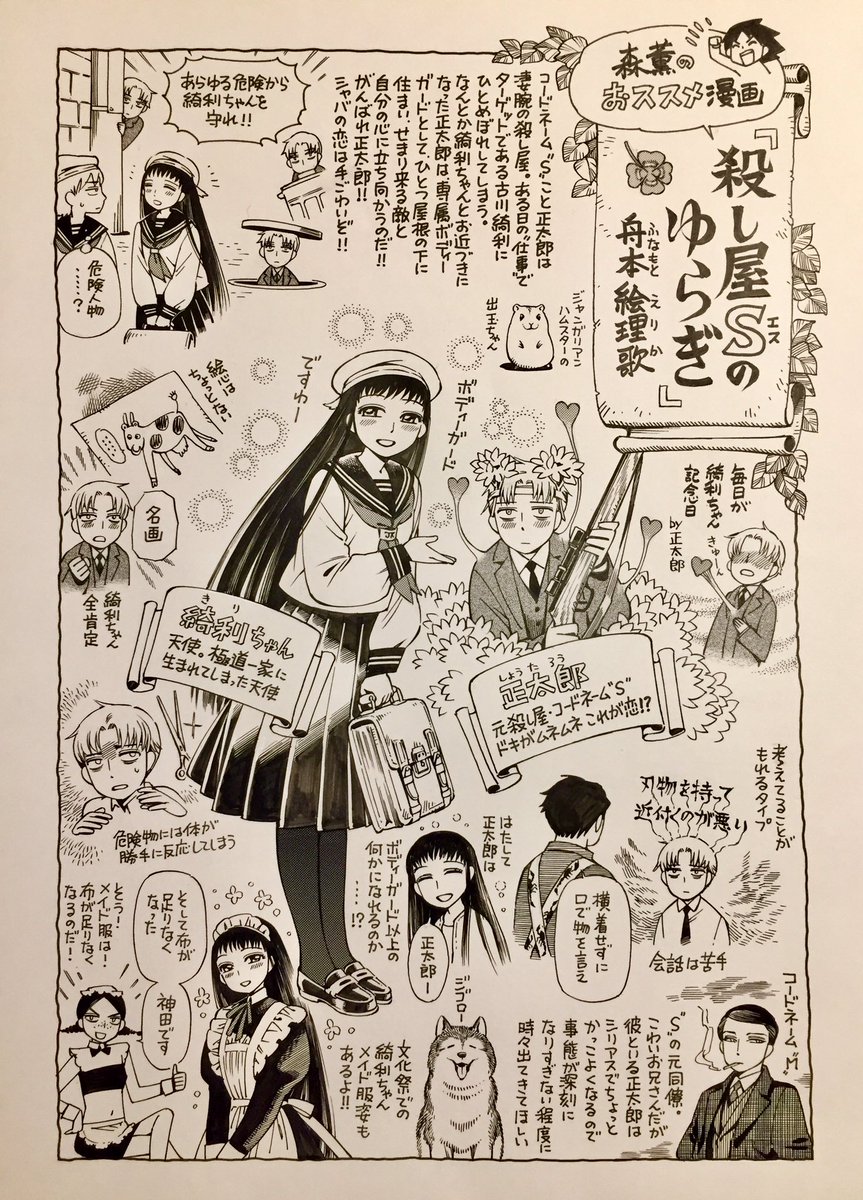 森薫の
おススメ漫画
『殺し屋Sの
エス
ゆらぎ』
ふなもと えりか
舟本 絵理歌
コードネーム"S"こと正太郎は
凄腕の殺し屋。ある日の"仕事"で
ターゲットである古川綺利に
ひとめぼれしてしまう。
なんとか綺利ちゃんとお近づきに
なった正太郎は、専属ボディー
ガードとして、ひとつ屋根の下に
住まい、せまり来る敵と
自分の心に立ち向かうのだ!!
がんばれ正太郎!!
シャバの恋は手ごわいぞ!!
あらゆる危険から
綺利ちゃんを
守れ!!
危険人物
……?
ジャンガリアン
ハムスターの
出玉ちゃん
毎日が
綺利ちゃん
記念日
by正太郎
きゅーん
ボディーガード
ですわー
JK
名画
綺利ちゃん
全肯定
きり
綺利ちゃん
天使。極道一家に
生まれてしまった天使
しょうたろう
正太郎
元殺し屋・コードネーム"S"
ドキがムネムネ これが恋!?
危険物には体が
勝手に反応してしまう
考えてることが
もれるタイプ
刃物を持って
近付くのが悪い
会話は苦手
横着せずに
口で物を言え
はたして
正太郎は
ボディーガード以上の
何かになれるのか
……!?
正太郎ー
そして布が
足りなく
なった
とう!
メイド服は!
布が足りなく
なるのだ!
神田です
文化祭での
綺利ちゃん
メイド服姿も
あるよ!!
ジゴロー
コードネーム"M"
"S"の元同僚。
こわいお兄さんだが
彼といる正太郎は
シリアスでちょっと
かっこよくなるので
事態が深刻に
なりすぎない程度に
時々出てきてほしい